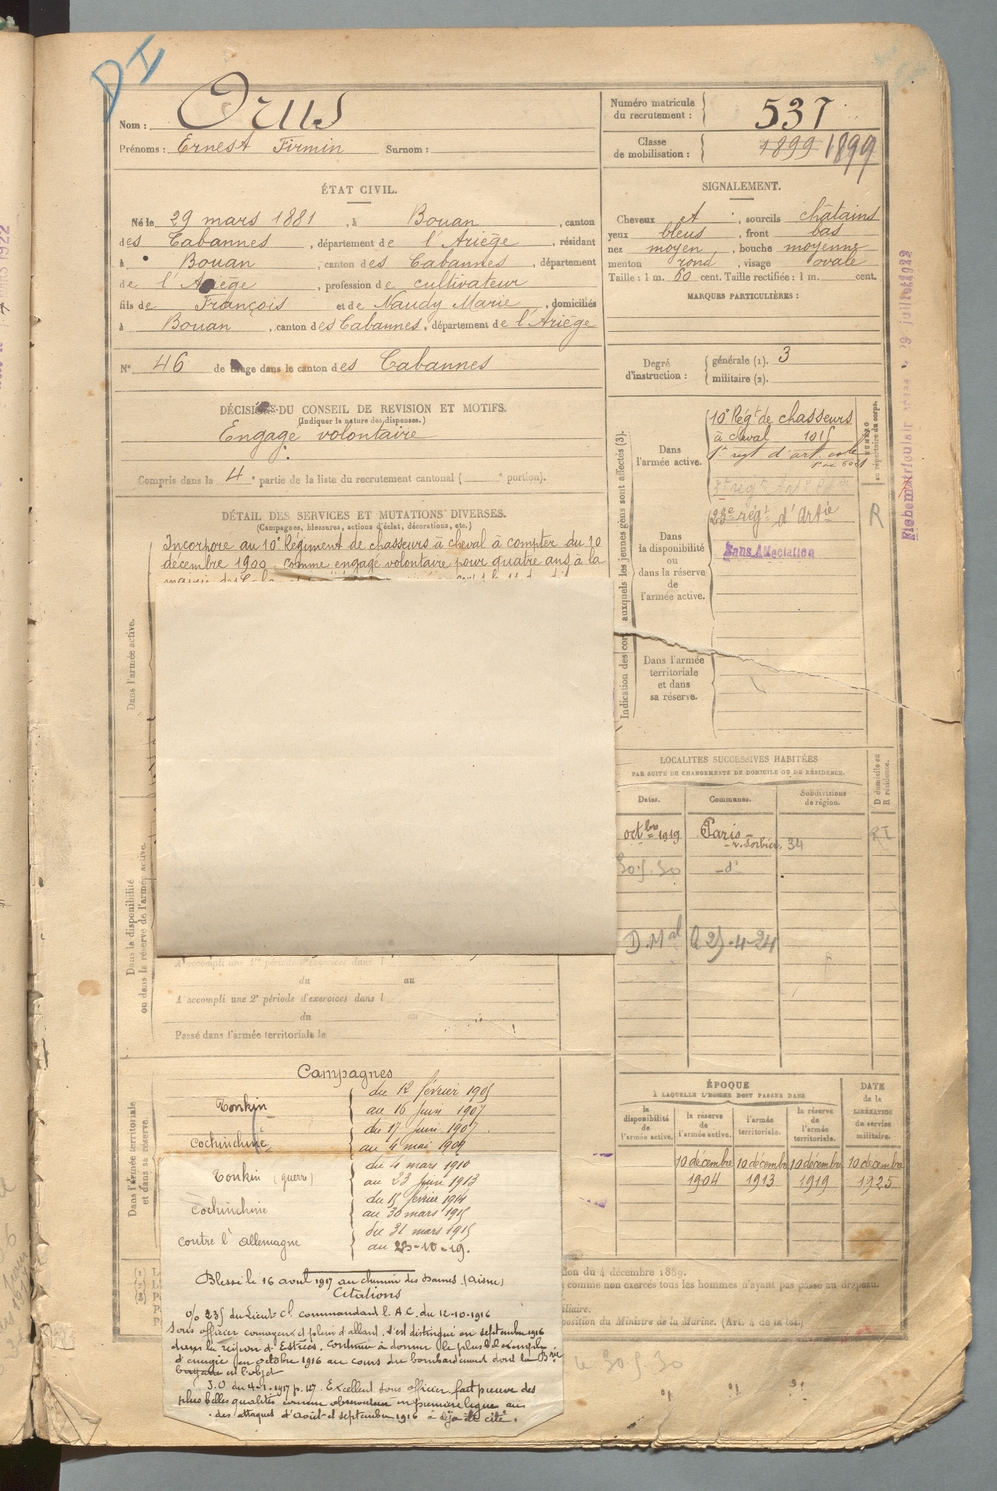 DI
Nom : Orus
Prénoms : Ernest Firmin Surnom :
Numéro matricule du recrutement : 537
Classe de mobilisation : 1899 1899
ÉTAT CIVIL.
Né le 29 mars 1881, à Bouan, canton
des Cabannes, département de l'Ariège, résidant
à Bouan, canton des Cabannes, département
de l'Ariège, profession de cultivateur
fils de François et de Naudy Marie, domiciliés
à Bouan, canton des Cabannes, département de l'Ariège
N° 46 de tirage dans le canton des Cabannes
DÉCISION DU CONSEIL DE REVISION ET MOTIFS.
(Indiquer la nature des dispenses.)
Engagé volontaire
Compris dans la 4e partie de la liste du recrutement cantonal ( e portion).
DÉTAIL DES SERVICES ET MUTATIONS DIVERSES.
(Campagnes, blessures, actions d'éclat, décorations, etc.)
Incorporé au 10e Régiment de chasseurs à cheval à compter du 10
décembre 1900 comme engagé volontaire pour quatre ans à la
Dans l'armée active.
Dans la disponibilité
ou dans la réserve de l'armée active.
A accompli une 1re période d'exercices dans l
du au
A accompli une 2e période d'exercices dans l
du au
Passé dans l'armée territoriale le
Dans l'armée territoriale
et dans sa réserve.
Campagnes
Tonkin du 12 février 1905
au 16 juin 1907
Cochinchine du 17 juin 1907
au 4 mai 1909
Tonkin (guerre) du 4 mars 1910
au 23 juin 1913
Cochinchine du 15 février 1914
au 30 mars 1915
contre l'allemagne du 31 mars 1915
au 23-10-19.
Blessé le 16 avril 1917 au chemin des Dames (Aisne)
Citations
O/ 235 du Lieut. Cl commandant l'A.C. du 12-10-1916
Sous officier courageux et plein d'allant. S'est distingué en septembre 1916
dans la région d'Estrées. Continue à donner le plus bel exemple
d'énergie en octobre 1916 au cours du bombardement dont la Bie
est l'objet
J.O. du 4-1-1917 p. 127. Excellent sous officier, fait preuve des
plus belles qualités comme observateur en première ligne au
des attaques d'Août et septembre 1916 a déjà été cité.
SIGNALEMENT.
Cheveux et, sourcils châtains
yeux bleus, front bas
nez moyen, bouche moyenne
menton rond, visage ovale
Taille : 1 m. 60 cent. Taille rectifiée : 1 m. cent.
MARQUES PARTICULIÈRES :
Degré d'instruction : générale (1). 3
militaire (2).
Indication des corps auxquels les jeunes gens sont affectés (3).
Dans l'armée active.
10e Régt de chasseurs
à cheval 1015
1er regt d'art. colle
Dans la disponibilité ou dans la réserve de l'armée active.
23e régt d'Artie
Sans Affectation
R
Dans l'armée territoriale et dans sa réserve.
LOCALITÉS SUCCESSIVES HABITÉES
PAR SUITE DE CHANGEMENTS DE DOMICILE OU DE RÉSIDENCE.
Dates. Communes. Subdivisions de région. D domicile ou R résidence.
octbre 1919 Paris
r. Sorbier, 34
30.5.30 – d°
D.Mal Q 25-4-24
ÉPOQUE
À LAQUELLE L'HOMME DOIT PASSER DANS
la disponibilité de l'armée active.
la réserve de l'armée active.
l'armée territoriale.
la réserve de l'armée territoriale.
DATE de la LIBÉRATION du service militaire.
10 décembre 1904
10 décembre 1913
10 décembre 1919
10 décembre 1925
comme non exercés tous les hommes n'ayant pas passé au drapeau.
position du Ministre de la Marine. (Art. 4 de la loi.)
le 30 5 30